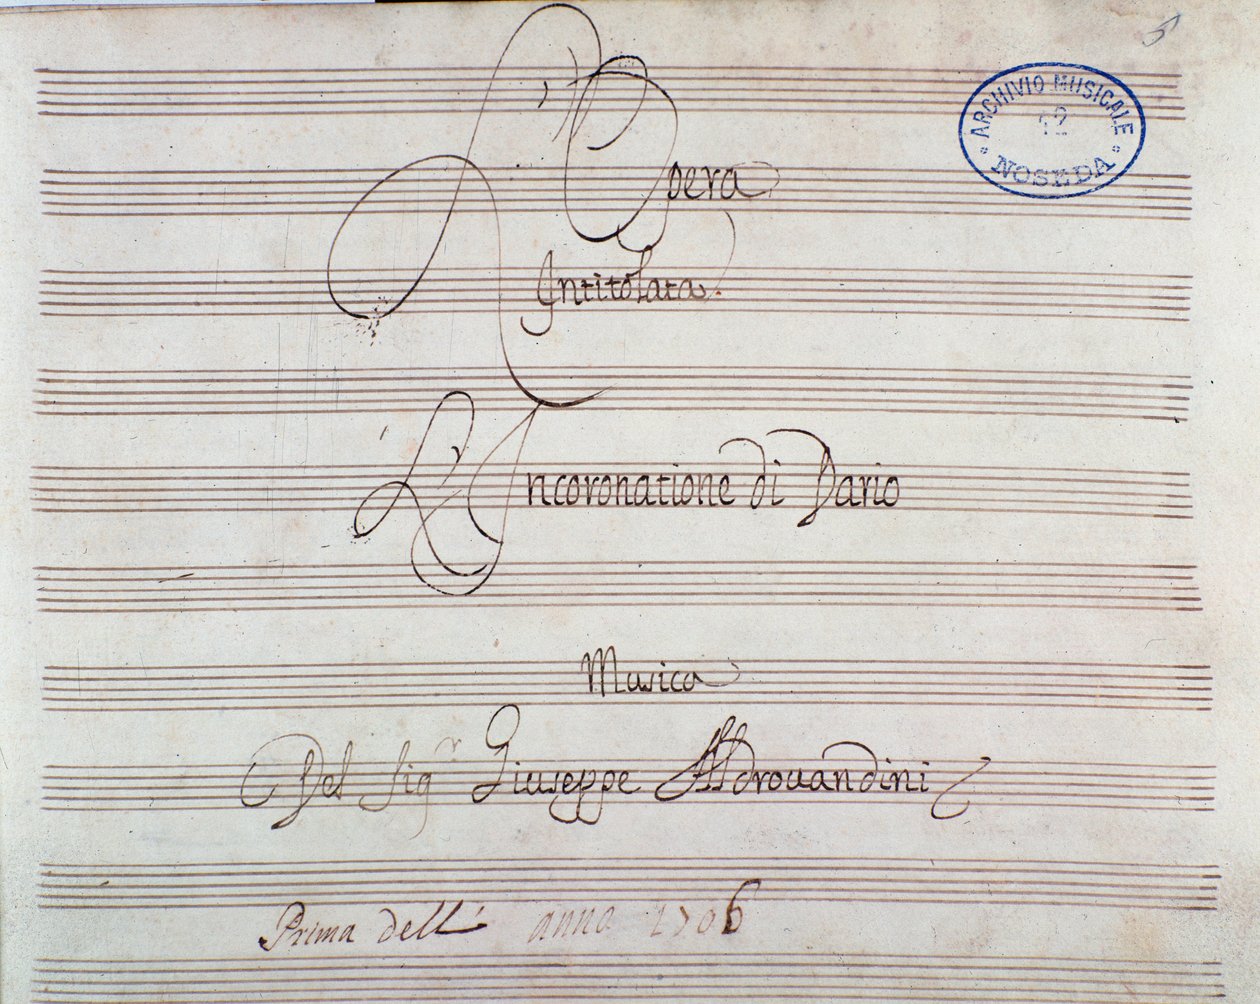 L'Opera
Intitolata.
L'Incoronatione di Dario
Musica
Del Sig.r Giuseppe Aldrovandini
Prima dell' anno 1706
ARCHIVIO MUSICALE
12
NOSEDA